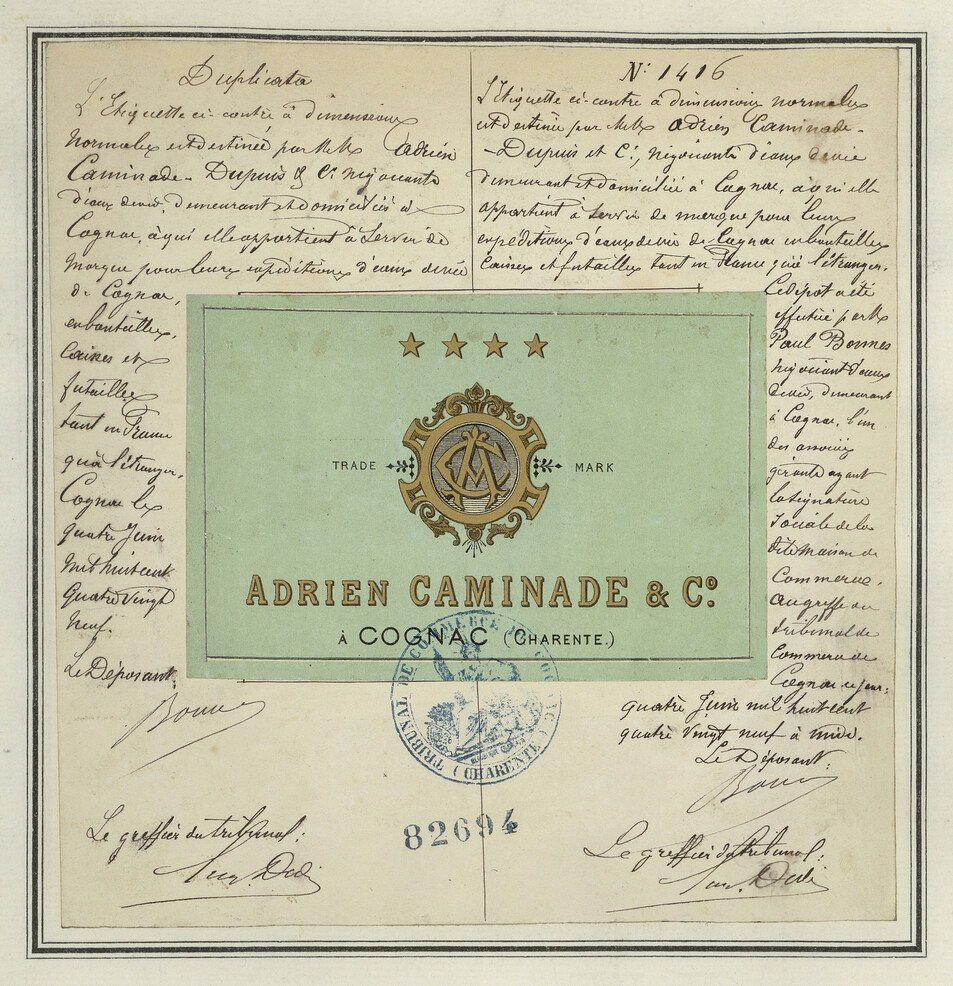 Duplicata
L'Etiquette ci-contre à dimensions
normales est destinée par MM. Adrien
Caminade-Dupuis & Cie négociants
d'eaux de vie, demeurant et domiciliés à
Cognac, à qui elle appartient à servir de
marque pour leurs expéditions d'eaux de vie
de Cognac,
en bouteilles,
caisses et
futailles
tant en France
qu'à l'étranger.
Cognac le
quatre Juin
mil huit cent
quatre vingt
neuf.
Le Déposant:
Le greffier du tribunal:
N° 1416
L'Etiquette ci-contre à dimensions normales
est destinée par MM. Adrien Caminade-
-Dupuis et Cie, négociants d'eaux de vie
demeurant et domiciliés à Cognac, à qui elle
appartient à servir de marque pour leurs
expéditions d'eaux de vie de Cognac en bouteilles
caisses et futailles tant en France qu'à l'étranger.
Ce dépôt a été
effectué par M.
Paul Bonnes
négociant d'eaux
de vie, demeurant
à Cognac, l'un
des associés
gérants ayant
la signature
sociale de la
dite maison de
Commerce,
au greffe du
tribunal de
Commerce de
Cognac ce jour:
quatre Juin mil huit cent
quatre vingt neuf à midi.
Le Déposant:
Le greffier du tribunal:
TRADE MARK
ADRIEN CAMINADE & Co.
À COGNAC (CHARENTE.)
TRIBUNAL DE COMMERCE DE COGNAC
(CHARENTE)
82694